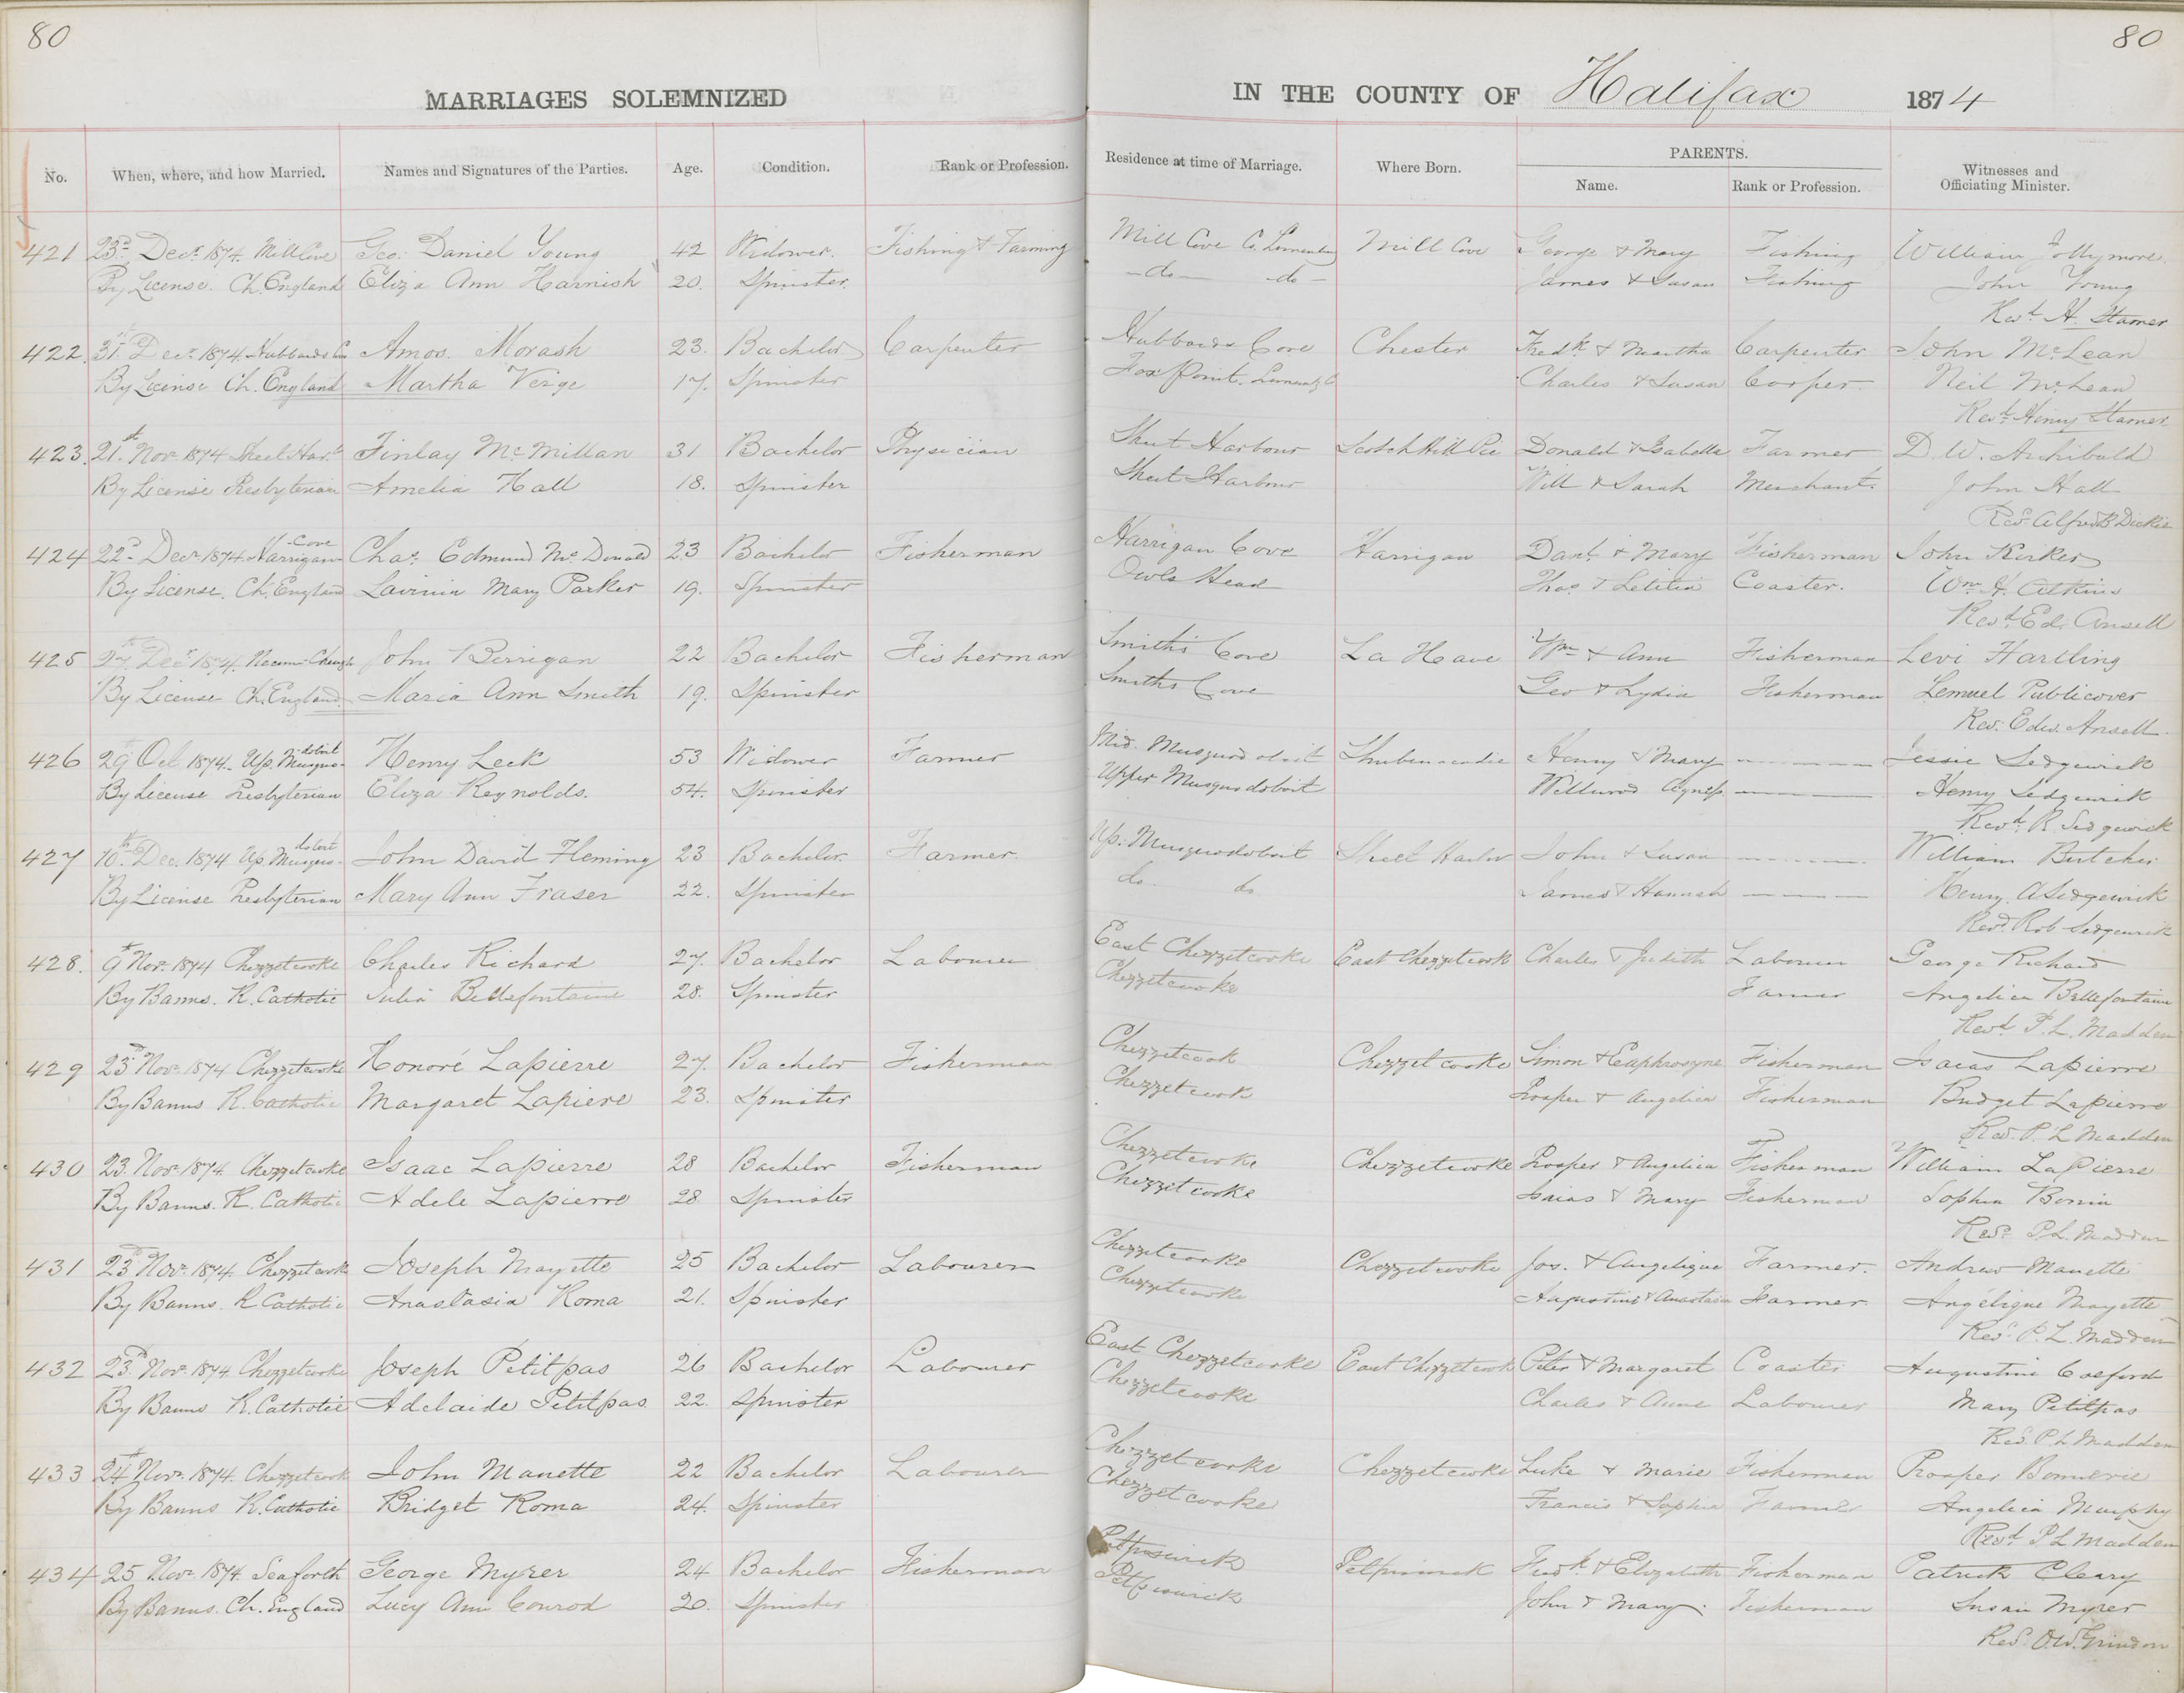 80
80
MARRIAGES SOLEMNIZED IN THE COUNTY OF Halifax 1874
No. When, where, and how Married. Names and Signatures of the Parties. Age. Condition. Rank or Profession. Residence at time of Marriage. Where Born. PARENTS. Name. Rank or Profession. Witnesses and Officiating Minister.
421 23d Decr 1874 Mill Cove Geo: Daniel Young 42 Widower. Fishing & Farming Mill Cove Co. Lunenburg Mill Cove George & Mary Fishing William Jollymore
By License. Ch. England Eliza Ann Harnish 20. Spinster. -do- do- James & Susan Fishing John Young
Revd H. Stamer
422. 31st Decr 1874. Hubbards Co Amos. Morash 23. Bachelor Carpenter Hubbards Cove Chester Fredk & Martha Carpenter John McLean
By License Ch. England Martha Verge 17. Spinster Fox Point. Lunenbg Co Charles & Susan Cooper. Neil McLean
Revd Henry Stamer
423. 21st Novr 1874 Sheet Harbr Finlay McMillan 31 Bachelor Physician Sheet Harbour Scotch Hill Pic Donald & Isabella Farmer D. W. Archibald
By License Presbyterian Amelia Hall 18. Spinster Sheet Harbour Will & Sarah Merchant. John Hall
Revd Alfred B Dickie
424 22d Decr 1874. Harrigan Cove Chas. Edmund McDonald 23 Bachelor Fisherman Harrigan Cove Harrigan Danl & Mary Fisherman John Kirker
By License. Ch. England Lavinia Mary Parker 19. Spinster Owls Head Thos & Letitia Coaster. Wm H. Atkins
Revd Ed. Ansell
425 27th Decr 1874. Necum-Cheugh John Berrigan 22 Bachelor Fisherman Smiths Cove La Have Wm & Ann Fisherman Levi Hartling
By License Ch. England. Maria Ann Smith 19. Spinster Smiths Cove Geo & Lydia Fisherman Lemuel Publicover
Rev. Edw. Ansell.
426 29 Oct 1874. Up. Musquodoboit Henry Leck 53 Widower Farmer Mid. Musquodoboit Shubenacadie Henry & Mary Jessie Sedgewick
By License Presbyterian Eliza Reynolds. 54. Spinster Upper Musquodoboit Agness. Henry Sedgewick
Revd R. Sedgewick
427 10th Dec. 1874 Up. Musquodoboit John David Fleming 23 Bachelor. Farmer. Up: Musquodoboit Sheet Harbor John & Susan William Butcher
By License Presbyterian Mary Ann Fraser 22. Spinster do do James & Hannah Henry A Sedgewick
Revd Rob Sedgewick
428. 9th Novr 1874 Chezzetcooke Charles Richard 27. Bachelor Labourer East Chezzetcooke East Chezzetcook Charles & Judith Labourer George Richard
By Banns. R. Catholic Julia Bellefontaine 28. Spinster Chezzetcooke Farmer Angelica Bellefontaine
Revd P. L. Madden
429 23d Novr 1874 Chezzetcooke Honoré Lapierre 27. Bachelor Fisherman Chezzetcook Chezzetcooke Simon & Euphrosyne Fisherman Isaias Lapierre
By Banns R. Catholic Margaret Lapiere 23. Spinster Chezzetcook Prosper & Angelica Fisherman Bridget Lapierre
Revd P. L Madden
430 23. Novr 1874. Chezzetcooke Isaac Lapierre 28 Bachelor Fisherman Chezzetcooke Chezzetcooke Prosper & Angelica Fisherman William LaPierre
By Banns. R. Catholic Adele Lapierre 28 Spinster Chezzetcooke Isaias & Mary Fisherman Sophia Bonin
Revd P. L. Madden
431 23d Novr 1874. Chezzetcooke Joseph Mayette 25 Bachelor Labourer Chezzetcooke Chezzetcooke Jos. & Angelique Farmer. Andrew Manette
By Banns. R Catholic Anastasia Roma 21. Spinster Chezzetcooke Augustine & Anastasia Farmer Angélique Mayette
Revd P. L. Madden
432 23d Novr 1874 Chezzetcooke Joseph Petitpas 26 Bachelor Labourer East Chezzetcooke East Chezzetcook Peter & Margaret Coaster Augustine
By Banns R. Catholic Adelaide Petitpas. 22. Spinster Chezzetcooke Charles & Anne Labourer Mary Petitpas
Revd P. L Madden
433 24th Novr 1874. Chezzetcook John Manette 22 Bachelor Labourer Chezzetcooke Chezzetcooke Luke & Marie Fisherman Prosper
By Banns R. Catholic Bridget Roma 24. Spinster Chezzetcooke Francis & Sophia Farmer Angelica Murphy
Revd P. L Madden
434 25 Novr 1874 Seaforth George Myrer 24 Bachelor Fisherman Petpiswick Petpiswick Fredk & Elizabeth Fisherman Patrick Cleary
By Banns. Ch. England Lucy Ann Conrod 20. Spinster Petpiswick John & Mary. Fisherman Susan Myrer
Revd O. W. Grindon